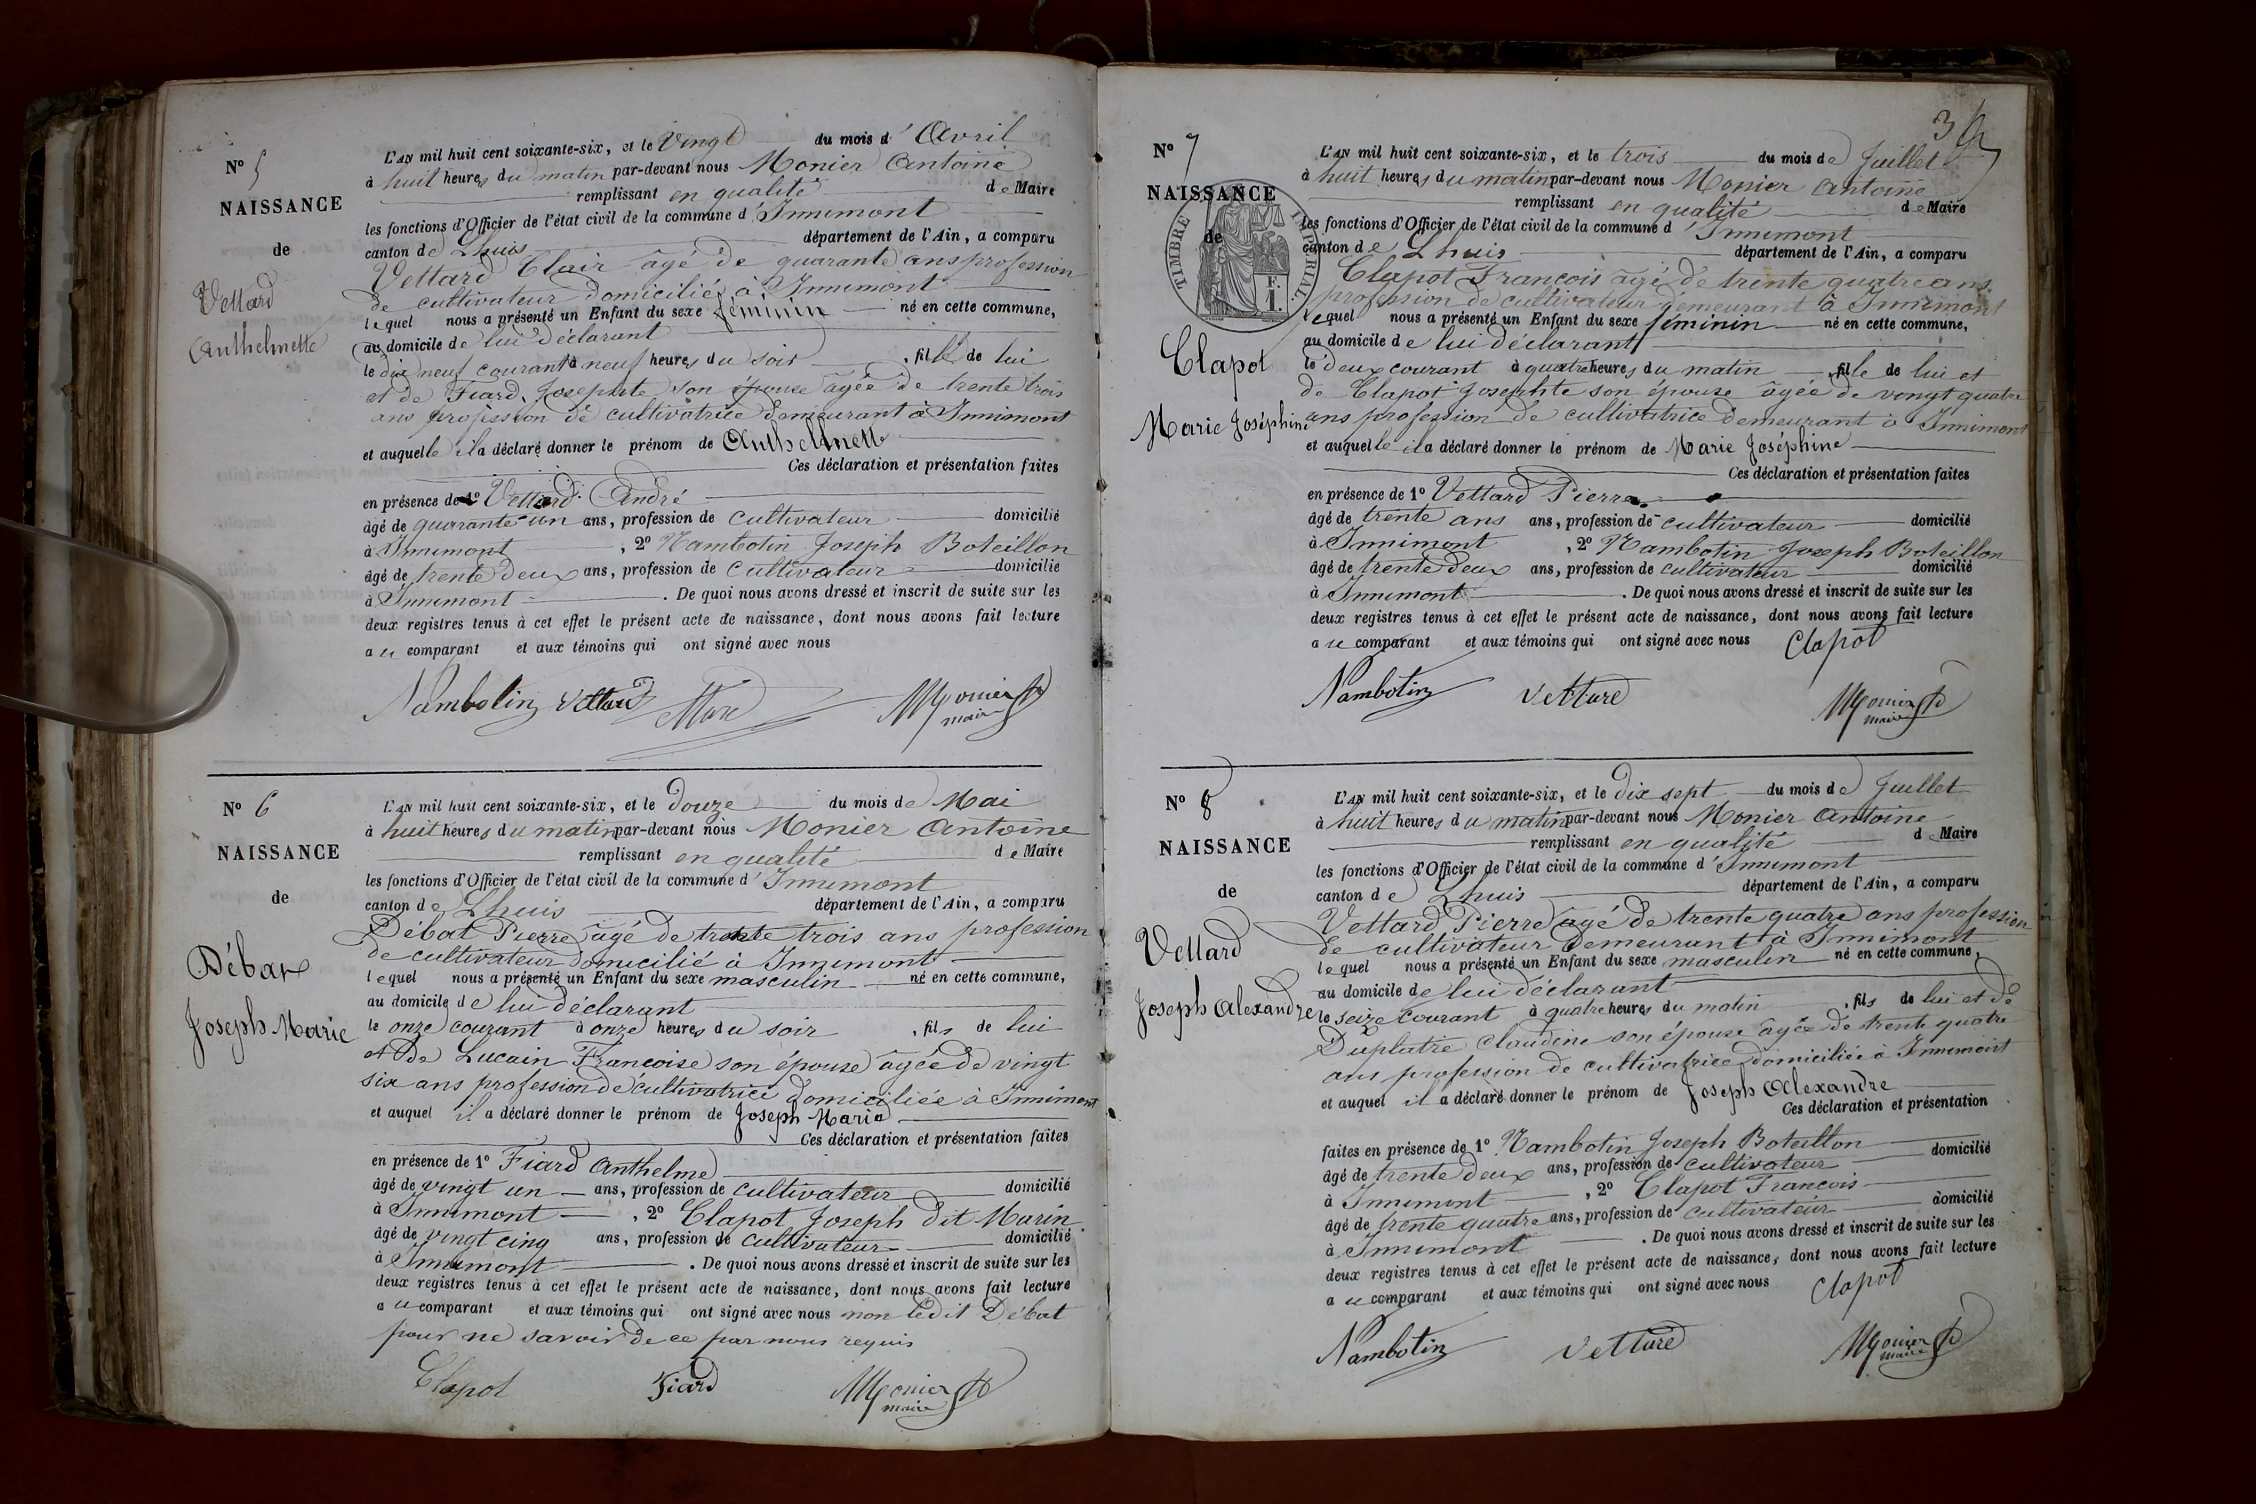 N° 5
NAISSANCE
de
Vettard
Anthelmette
L'AN mil huit cent soixante-six, et le Vingt du mois d'Avril
à huit heures du matin par-devant nous Monier Antoine
remplissant en qualité de Maire
les fonctions d'Officier de l'état civil de la commune d'Innimont
canton de Lhuis département de l'Ain, a comparu
Vettard Clair âgé de quarante ans profession
de cultivateur domicilié à Innimont
lequel nous a présenté un Enfant du sexe féminin né en cette commune,
au domicile de lui déclarant
le dix neuf courant à neuf heures du soir, fille de lui
et de Fiard Josephte son épouse âgée de trente trois
ans profession de cultivatrice demeurant à Innimont
et auquelle il a déclaré donner le prénom de Anthelmette
Ces déclaration et présentation faites
en présence de 1° Vettard André
âgé de quarante un ans, profession de cultivateur domicilié
à Innimont, 2° Nambotin Joseph Boteillon
âgé de trente deux ans, profession de cultivateur domicilié
à Innimont. De quoi nous avons dressé et inscrit de suite sur les
deux registres tenus à cet effet le présent acte de naissance, dont nous avons fait lecture
au comparant et aux témoins qui ont signé avec nous
Nambotin Vettard Monier
maire
N° 6
NAISSANCE
de
Débat
Joseph Marie
L'AN mil huit cent soixante-six, et le douze du mois de Mai
à huit heures du matin par-devant nous Monier Antoine
remplissant en qualité de Maire
les fonctions d'Officier de l'état civil de la commune d'Innimont
canton de Lhuis département de l'Ain, a comparu
Débat Pierre âgé de trente trois ans profession
de cultivateur domicilié à Innimont
lequel nous a présenté un Enfant du sexe masculin né en cette commune,
au domicile de lui déclarant
le onze courant à onze heures du soir, fils de lui
et de Lucain Francoise son épouse âgée de vingt
six ans profession de cultivatrice domiciliée à Innimont
et auquel il a déclaré donner le prénom de Joseph Marie
Ces déclaration et présentation faites
en présence de 1° Fiard Anthelme
âgé de vingt un ans, profession de cultivateur domicilié
à Innimont, 2° Clapot Joseph dit Marin
âgé de vingt cinq ans, profession de cultivateur domicilié
à Innimont. De quoi nous avons dressé et inscrit de suite sur les
deux registres tenus à cet effet le présent acte de naissance, dont nous avons fait lecture
au comparant et aux témoins qui ont signé avec nous non ledit Débat
pour ne savoir de ce par nous requis
Clapot Fiard Monier
maire
N° 7
NAISSANCE
de
TIMBRE IMPERIAL
Clapot
Marie Joséphine
L'AN mil huit cent soixante-six, et le trois du mois de Juillet
à huit heures du matin par-devant nous Monier Antoine
remplissant en qualité de Maire
les fonctions d'Officier de l'état civil de la commune d'Innimont
canton de Lhuis département de l'Ain, a comparu
Clapot François âgé de trente quatre ans
profession de cultivateur demeurant à Innimont
lequel nous a présenté un Enfant du sexe féminin né en cette commune,
au domicile de lui déclarant
le deux courant à quatre heures du matin, file de lui et
de Clapot Josephte son épouse âgée de vingt quatre
ans profession de cultivatrice demeurant à Innimont
et auquelle il a déclaré donner le prénom de Marie Joséphine
Ces déclaration et présentation faites
en présence de 1° Vettard Pierre
âgé de trente ans ans, profession de cultivateur domicilié
à Innimont, 2° Nambotin Joseph Boteillon
âgé de trente deux ans, profession de cultivateur domicilié
à Innimont. De quoi nous avons dressé et inscrit de suite sur les
deux registres tenus à cet effet le présent acte de naissance, dont nous avons fait lecture
au comparant et aux témoins qui ont signé avec nous Clapot
Nambotin Vettard Monier
maire
N° 8
NAISSANCE
de
Vettard
Joseph Alexandre
L'AN mil huit cent soixante-six, et le dix sept du mois de Juillet
à huit heures du matin par-devant nous Monier Antoine
remplissant en qualité de Maire
les fonctions d'Officier de l'état civil de la commune d'Innimont
canton de Lhuis département de l'Ain, a comparu
Vettard Pierre âgé de trente quatre ans profession
de cultivateur demeurant à Innimont
lequel nous a présenté un Enfant du sexe masculin né en cette commune,
au domicile de lui déclarant
le seize courant à quatre heures du matin, fils de lui et de
Duplatre Claudine son épouse âgée de trente quatre
ans profession de cultivatrice domiciliée à Innimont
et auquel il a déclaré donner le prénom de Joseph Alexandre
Ces déclaration et présentation
faites en présence de 1° Nambotin Joseph Boteillon
âgé de trente deux ans, profession de cultivateur domicilié
à Innimont, 2° Clapot Francois
âgé de trente quatre ans, profession de cultivateur domicilié
à Innimont. De quoi nous avons dressé et inscrit de suite sur les
deux registres tenus à cet effet le présent acte de naissance, dont nous avons fait lecture
au comparant et aux témoins qui ont signé avec nous Clapot
Nambotin Vettard Monier
maire